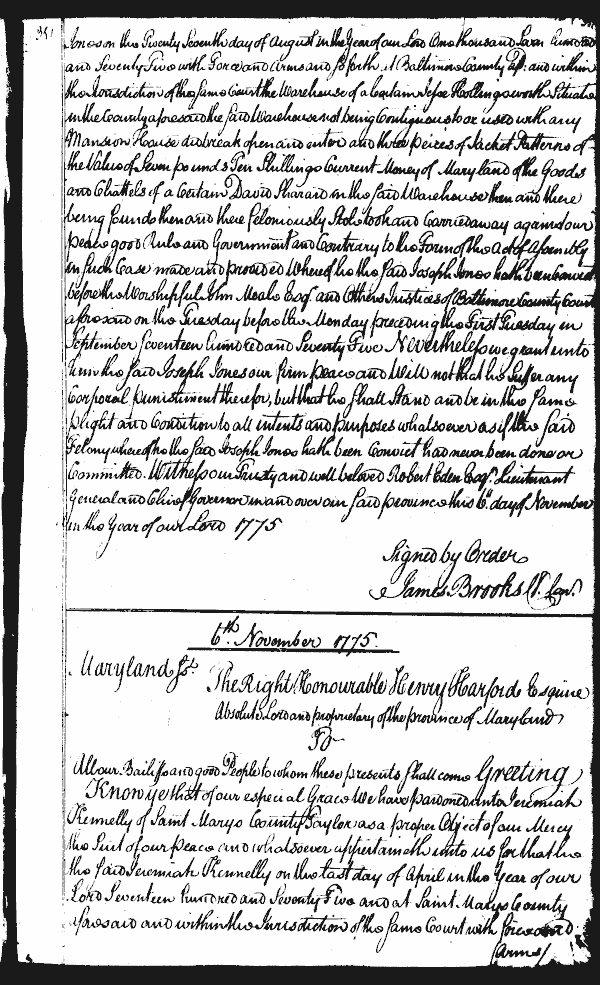 Jones on the Twenty Seventh day of August in the Year of our Lord One thousand Seven hundred
and Seventy Two with Force and Arms and so forth at Baltimore County and within
the Jurisdiction of the same Court the Warehouse of a Certain Jesse Hollingsworth Situate
in the County aforesaid the said Warehouse not being Contiguous to or used with any
Mansion House did break open and enter and three peices of Sachet Patterns of
the Value of Seven pounds Ten Shillings Current Money of Maryland of the Goods
and Chattels of a Certain David in the said Warehouse then and there
being found then and there feloniously Stole took and Carried away against our
peace good Rule and Government and Contrary to the Form of the Act of Assembly
in such Case made and provided Whereof he the said Joseph Jones hath been Convict
before the Worshipful John Moale Esqr. and Others Justices of Baltimore County Court
aforesaid on the Tuesday before the Monday preceding the First Tuesday in
September Seventeen hundred and Seventy Five Nevertheless we grant unto
him the said Joseph Jones our firm peace and Will not that he Suffer any
Corporal punishment therefor, but that he shall Stand and be in the same
plight and Condition to all intents and purposes whatsoever as if the said
Felony whereof he the said Joseph Jones hath been Convict had never been done or
Committed. Witness our Trusty and well beloved Robert Eden Esqr. Lieutenant
General and Chief Governor in and over our said province this 6th day of November
in the Year of our Lord 1775
Signed by Order
James Brooks
6th November 1775.
Maryland Sst.
The Right Honourable Henry Harford Esquire
Absolute Lord and proprietary of the province of Maryland
To
All our Bailiffs and good People to whom these presents shall come Greeting
Know ye that of our especial Grace We have pardoned unto Jeremiah
Kennelly of Saint Marys County Taylor as a proper Object of our Mercy
the Suit of our Peace and whatsoever appertaineth unto us for that he
the said Jeremiah Kennelly on the last day of April in the Year of our
Lord Seventeen hundred and Seventy Two and at Saint Marys County
aforesaid and within the Jurisdiction of the same Court with force and
Arms/